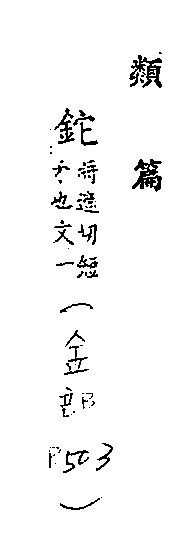 類篇
鉈 将遮切短
矛也文一
(金部
P503)